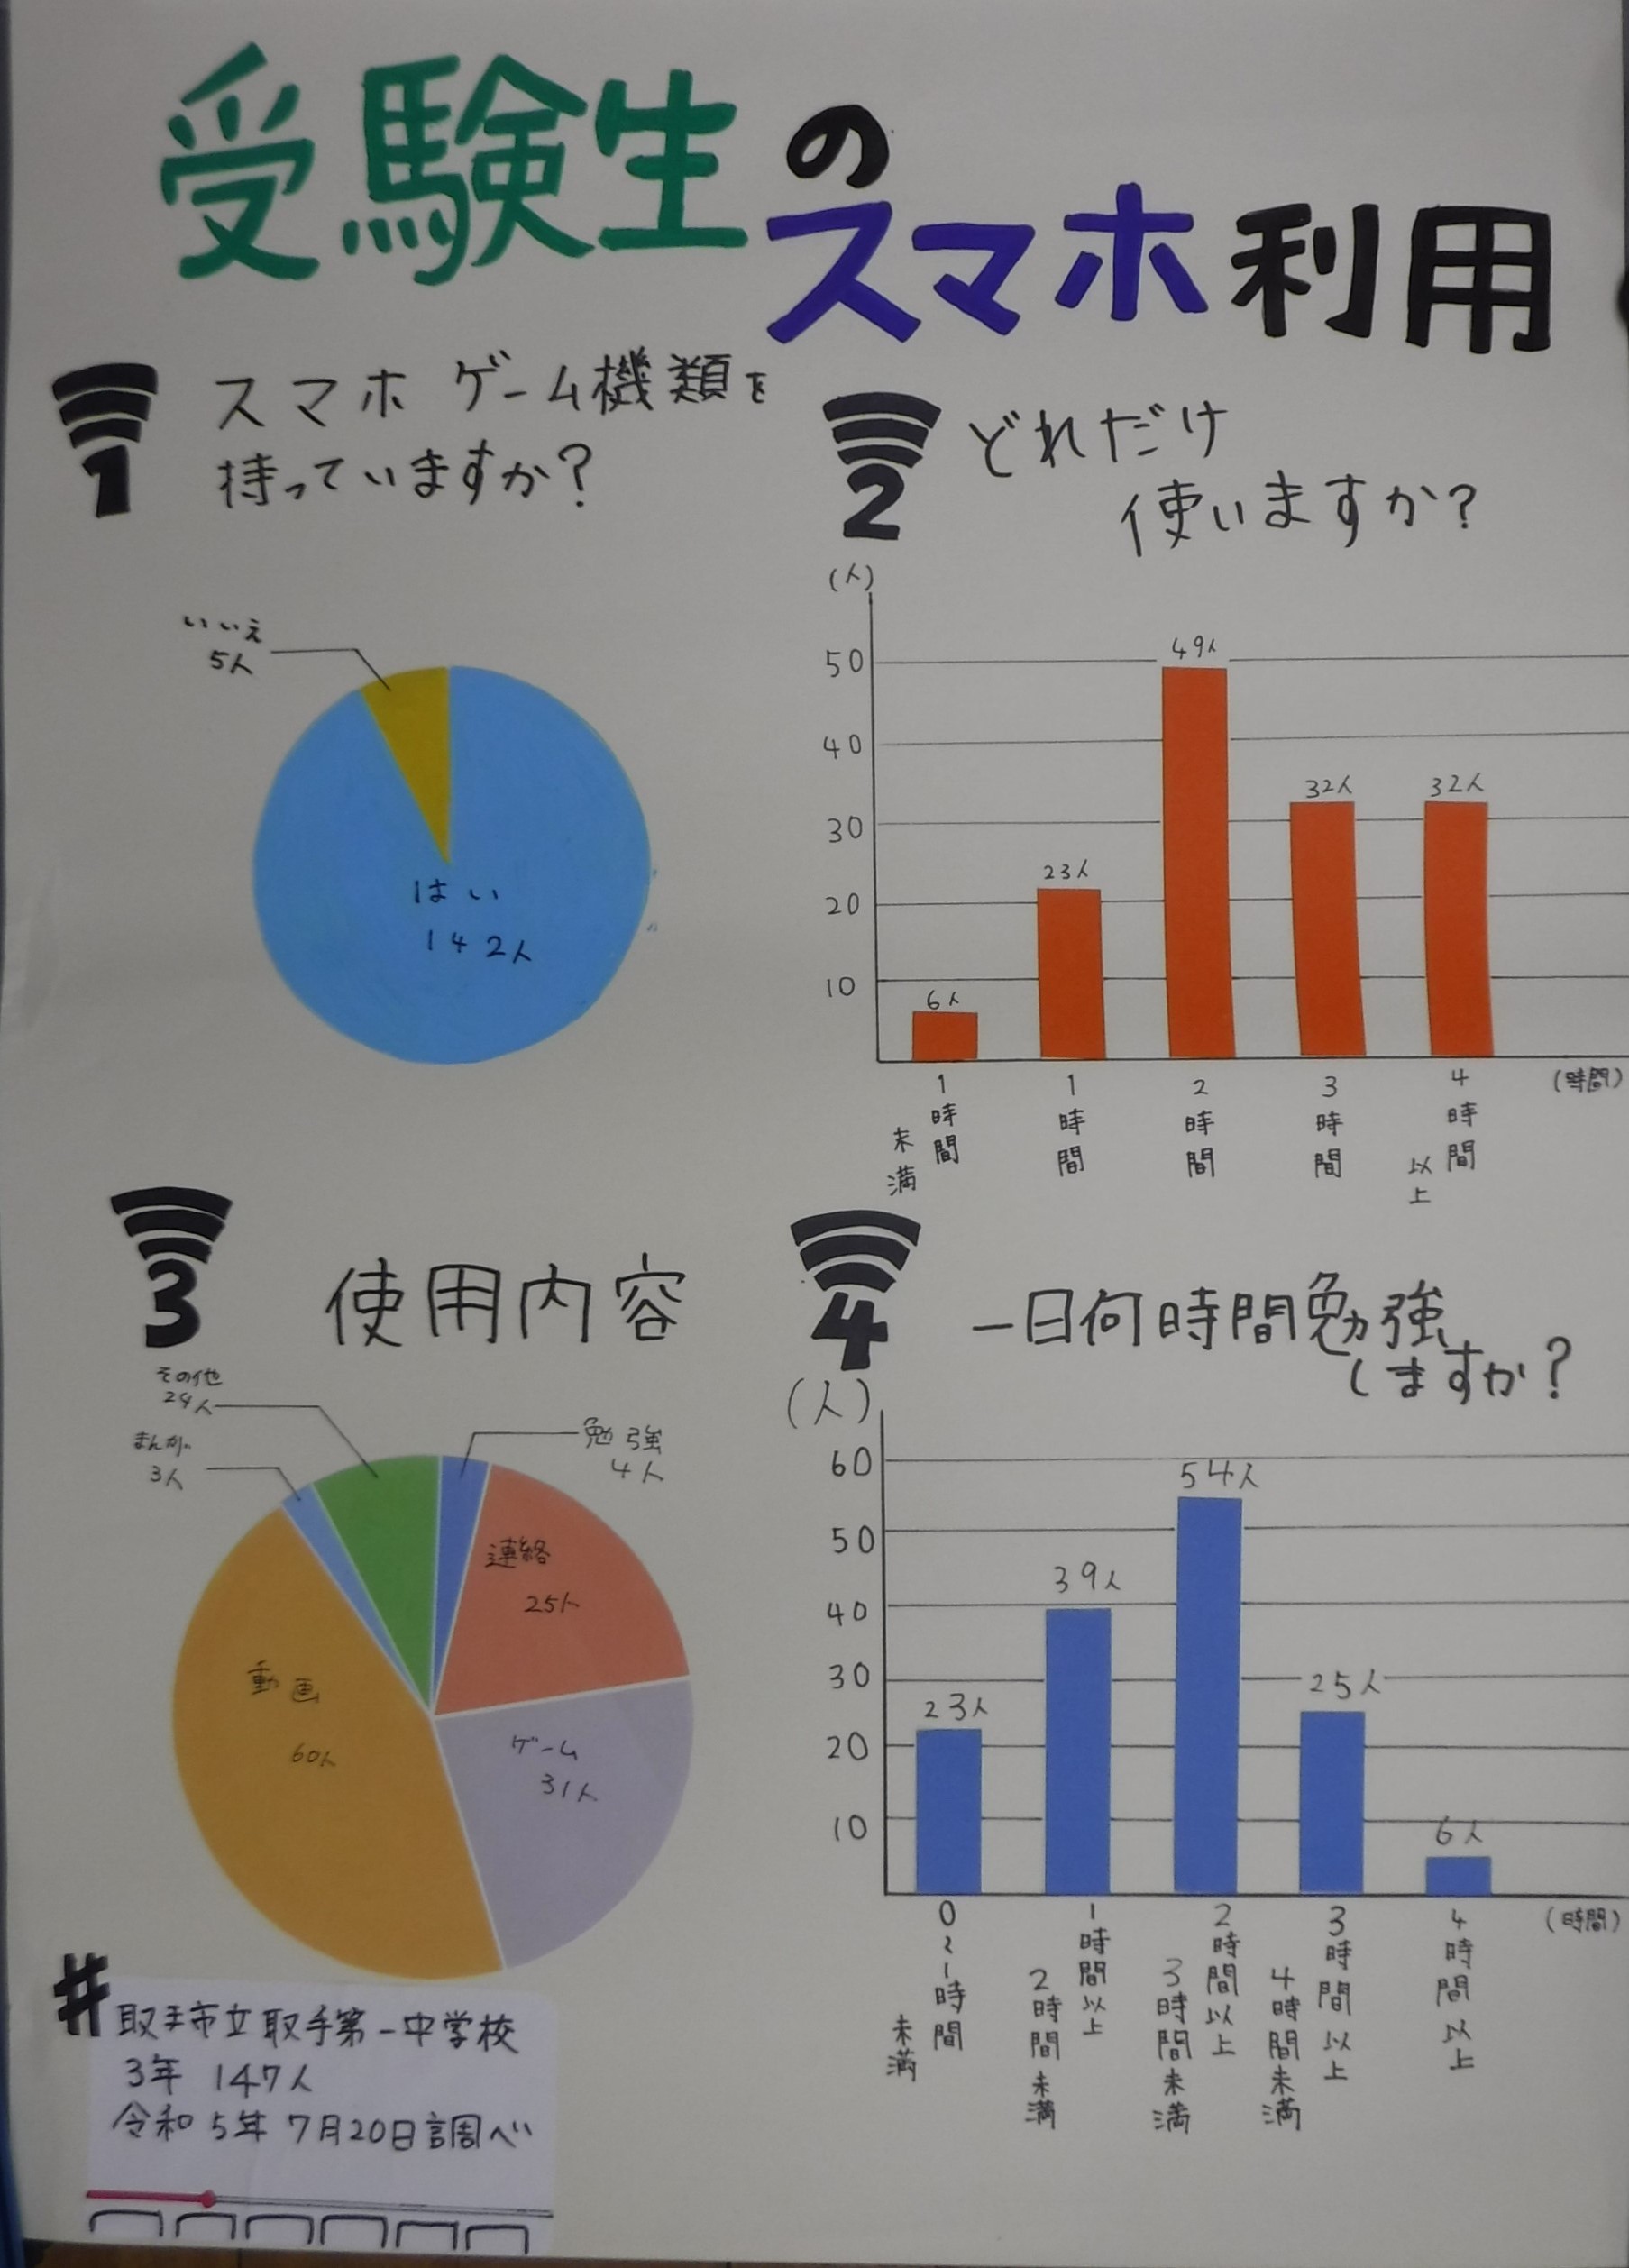 受験生の
スマホ利用
1
スマホ ゲーム機類を
持っていますか?
いいえ
5人
はい
142人
2
どれだけ
使いますか?
(人)
50
40
30
20
10
6人
23人
49人
32人
32人
1時間
未満
1時間
2時間
3時間
4時間
以上
(時間)
3
使用内容
その他
24人
まんが
3人
勉強
4人
連絡
25人
ゲーム
31人
動画
60人
4
一日何時間勉強
しますか?
(人)
60
50
40
30
20
10
23人
39人
54人
25人
6人
0~1時間
未満
1時間以上
2時間未満
2時間以上
3時間未満
3時間以上
4時間未満
4時間以上
(時間)
#取手市立取手第一中学校
3年 147人
令和5年 7月20日調べ